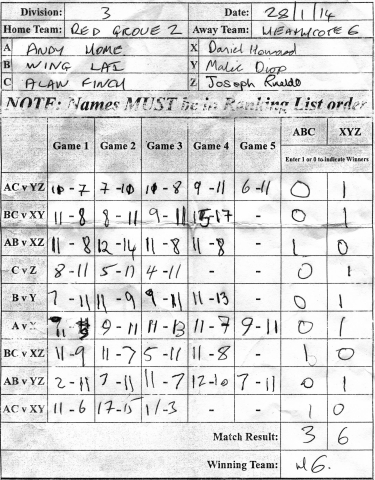 Division: 3 Date: 28/1/14
Home Team: RED GROVE 2 Away Team: HEATHCOTE 6
A ANDY HOME X Daniel Howard
B WING LAI Y Malic Diop
C ALAN FINCH Z Joseph
NOTE: Names MUST be in Ranking List order
ABC XYZ
Game 1 Game 2 Game 3 Game 4 Game 5
Enter 1 or 0 to indicate Winners
AC v YZ 11-7 7-10 11-8 9-11 6-11 0 1
BC v XY 11-8 8-11 9-11 15-17 - 0 1
AB v XZ 11-8 12-14 11-8 11-8 - 1 0
C v Z 8-11 5-11 4-11 - - 0 1
B v Y 7-11 11-9 9-11 11-13 - 0 1
A v X 9-11 11-13 11-7 9-11 0 1
BC v XZ 11-9 11-7 5-11 11-8 - 1 0
AB v YZ 2-11 7-11 11-7 12-10 7-11 0 1
AC v XY 11-6 17-15 11-3 - - 1 0
Match Result: 3 6
Winning Team: H6.